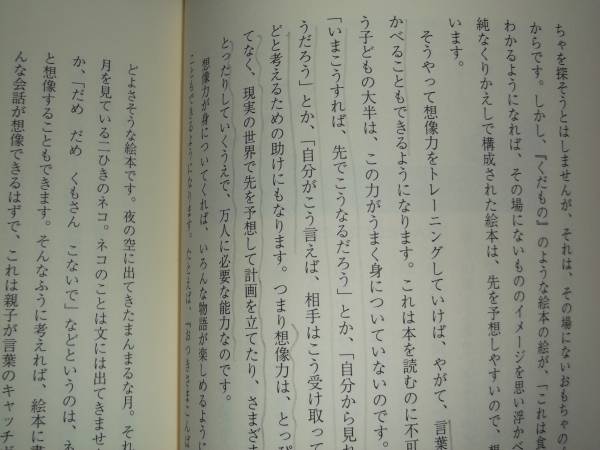 ちゃを探そうとはしませんが、それは、その場にないおもちゃの
からです。しかし、『くだもの』のような絵本の絵が、「これは食
わかるようになれば、その場にないもののイメージを思い浮かべ
純なくりかえしで構成された絵本は、先を予想しやすいので、想
います。
そうやって想像力をトレーニングしていけば、やがて、言葉
かべることもできるようになります。これは本を読むのに不可
う子どもの大半は、この力がうまく身についていないのです。
「いまこうすれば、先でこうなるだろう」とか、「自分から見れ
うだろう」とか、「自分がこう言えば、相手はこう受け取って
どと考えるための助けにもなります。つまり想像力は、とっぴ
てなく、現実の世界で先を予想して計画を立てたり、さまざま
とったりしていくうえで、万人に必要な能力なのです。
想像力が身についてくれば、いろんな物語が楽しめるように
こともできるようになります。たとえば、『おつきさまこんば
どよさそうな絵本です。夜の空に出てきたまんまるな月。それ
月を見ている二ひきのネコ。ネコのことは文には出てきませ
か、「だめ だめ くもさん こないで」などというのは、ネ
と想像することもできます。そんなふうに考えれば、絵本に書
んな会話が想像できるはずで、これは親子が言葉のキャッチ